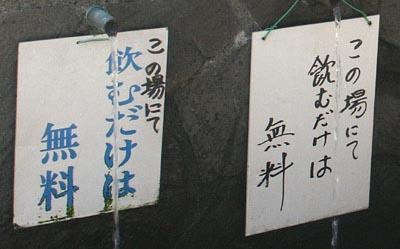 この場にて
飲むだけは
無料
この場にて
飲むだけは
無料